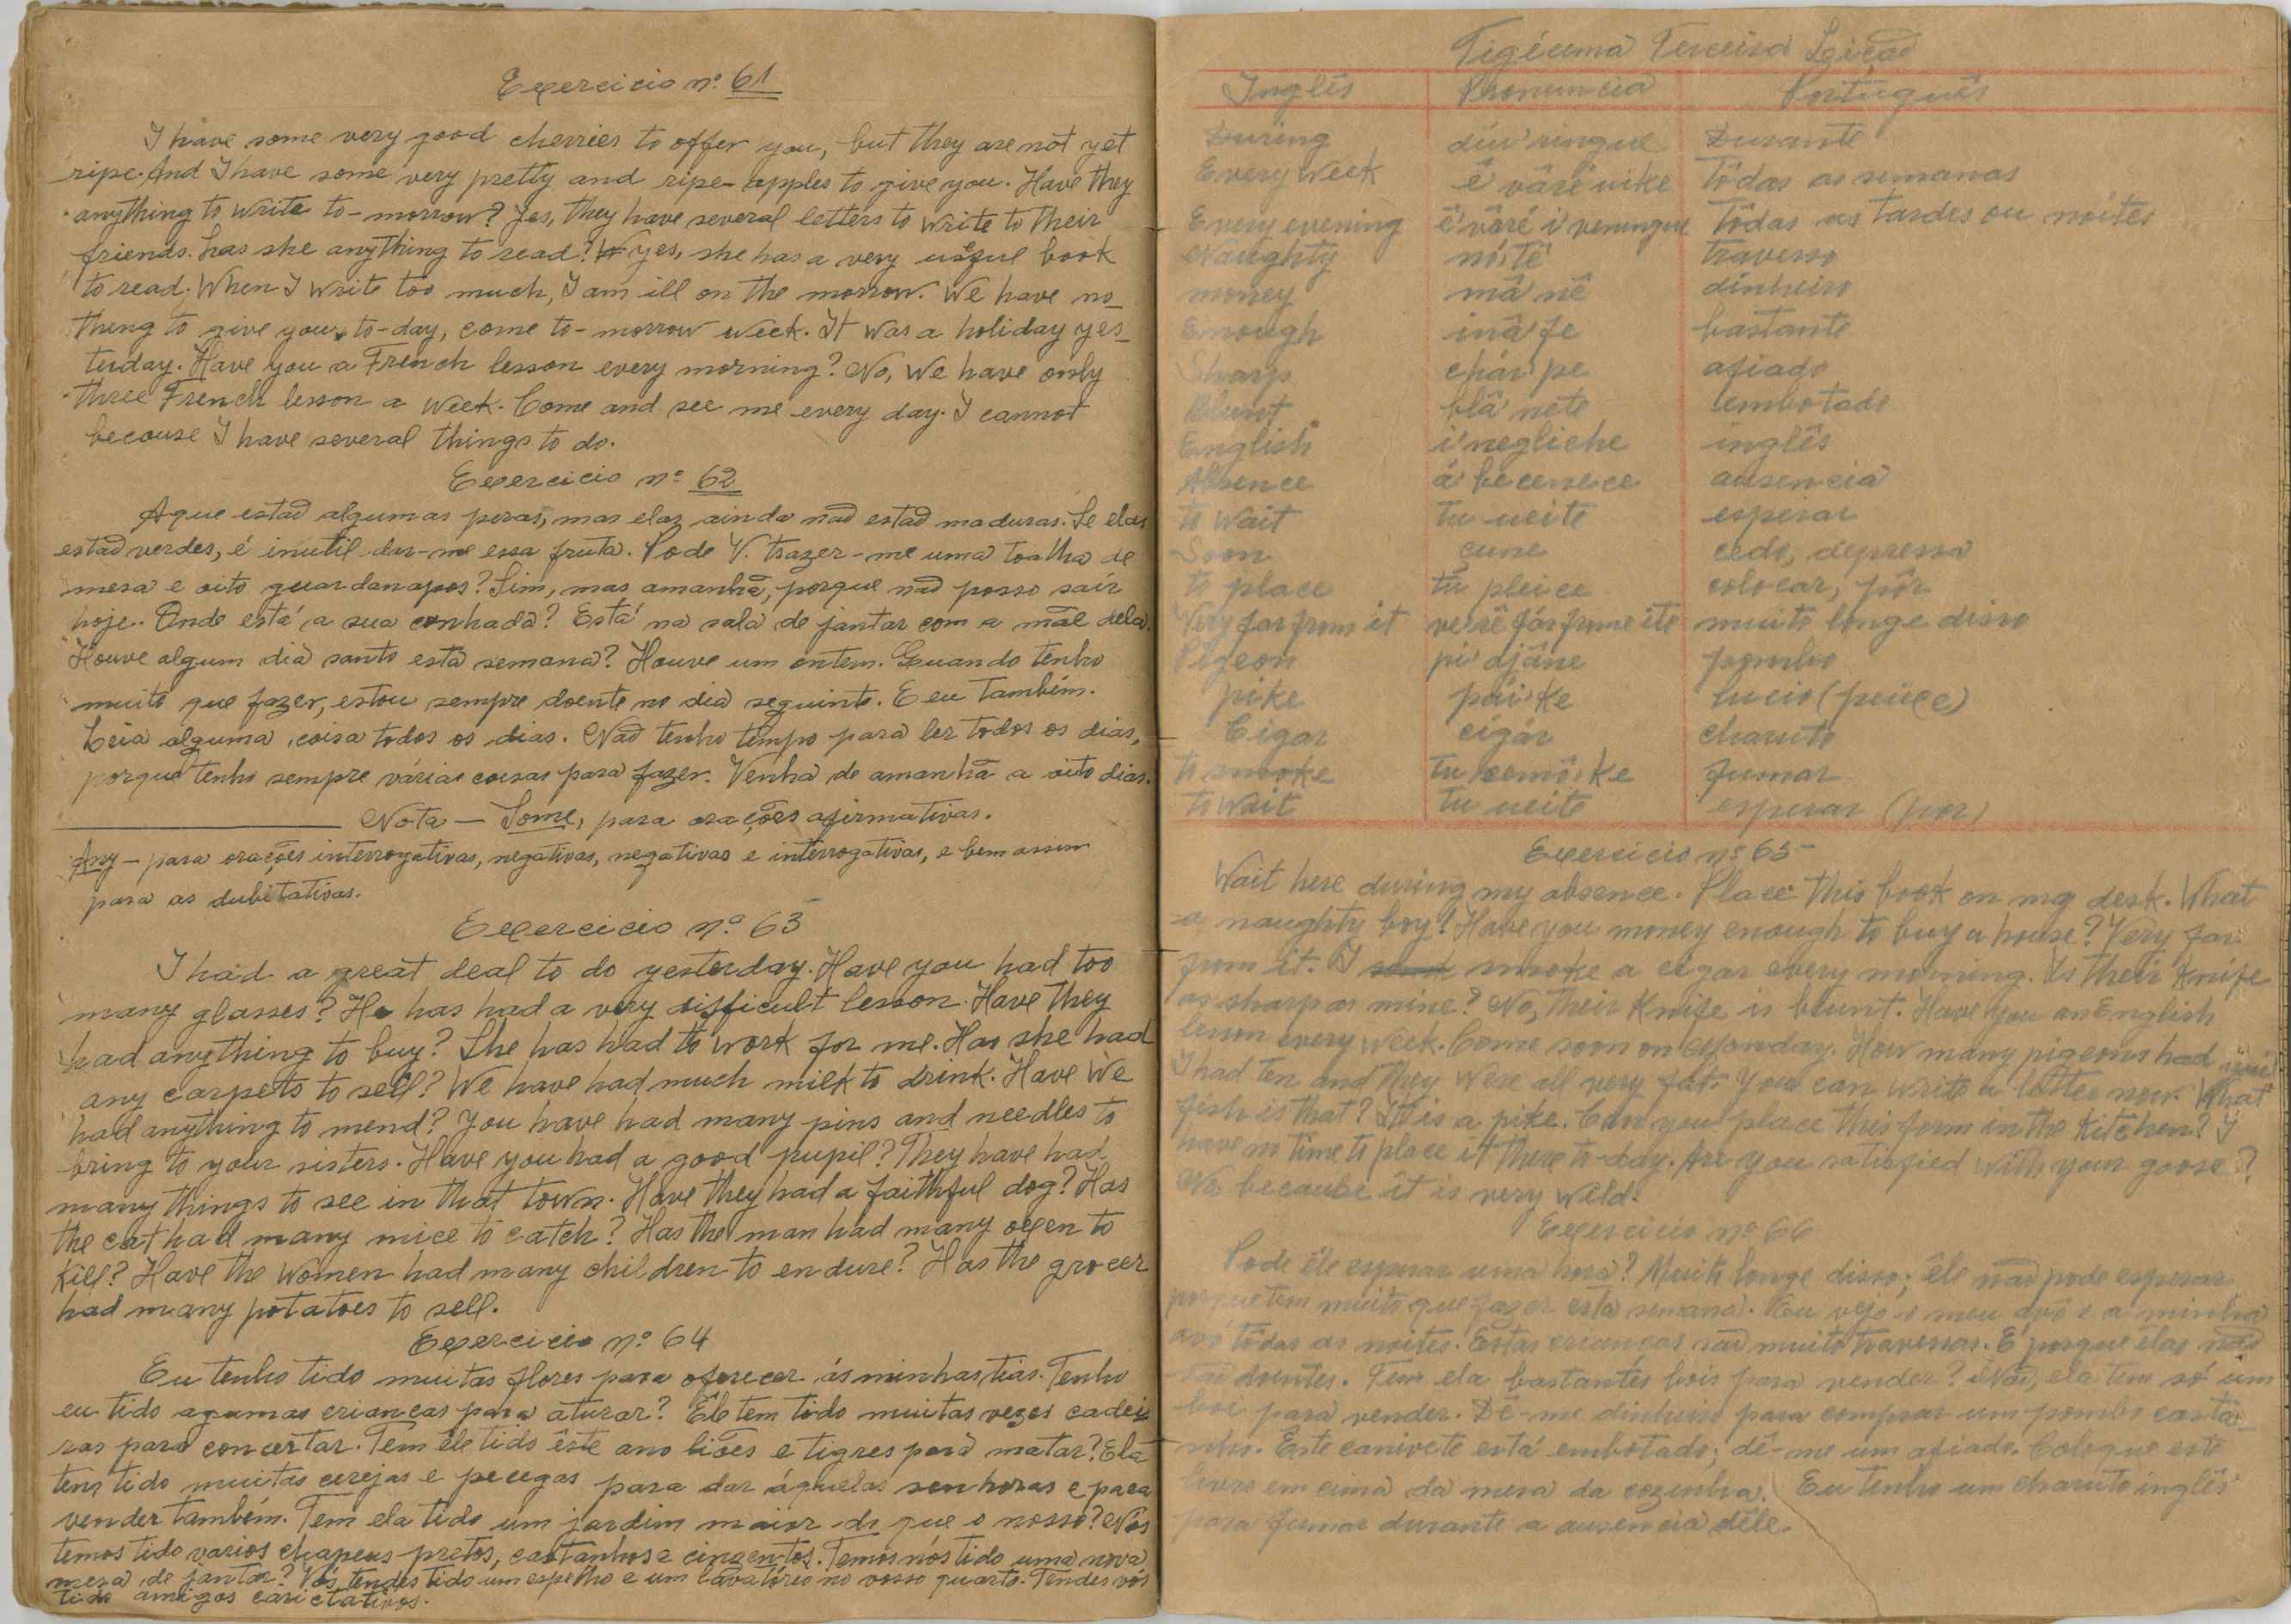 Exercicio nº 61
I have some very good cherries to offer you, but they are not yet
ripe. And I have some very pretty and ripe apples to give you. Have they
anything to write to-morrow? Yes, they have several letters to write to their
friends. has she anything to read? yes, she has a very useful book
to read. When I write too much, I am ill on the morrow. We have no_
thing to give you to-day, come to-morrow week. It was a holiday yes_
terday. Have you a French lesson every morning? No, We have only
three French lesson a week. Come and see me every day. I cannot
becouse I have several things to do.
Exercicio nº 62
Aque estão algumas peras, mas elas ainda não estão maduras. Se elas
estão verdes, é inutil dar-me essa fruta. Pode V. trazer-me uma toalha de
mesa e oito guardanapos? Sim, mas amanhã, porque não posso sair
hoje. Onde está a sua cunhada? Está na sala de jantar com a mãe dela.
Houve algum dia santo esta semana? Houve um ontem. Quando tenho
muito que fazer, estou sempre doente no dia seguinte. E eu também.
Leia alguma coisa todos os dias. Não tenho tempo para ler todos os dias,
porque tenho sempre várias coisas para fazer. Venha de amanhã a oito dias.
Nota — Some, para orações afirmativas.
Any — para orações interrogativas, negativas, negativas e interrogativas, e bem assim
para as dubitativas.
Exercicio nº 63
I had a great deal to do yesterday. Have you had too
many glasses? He has had a very difficult lesson. Have they
had anything to buy? She has had to work for me. Has she had
any carpets to sell? We have had much milk to drink. Have We
had anything to mend? You have had many pins and needles to
bring to your sisters. Have you had a good pupil? They have had
many things to see in that town. Have they had a faithful dog? Has
the cat had many mice to catch? Has the man had many oxen to
Kill? Have the Women had many children to endure? Has the grocer
had many potatoes to sell.
Exercicio nº 64
Eu tenho tido muitas flores para oferecer ás minhas tias. Tenho
eu tido agumas crianças para aturar? Êle tem tido muitas vezes cadei_
ras para concertar. Tem êle tido êste ano liões e tigres para matar? Ela
tem tido muitas cerejas e pecegas para dar áquelas senhoras e para
vender também. Tem ela tido um jardim maior do que o nosso? Nós
temos tido varios chapeus pretos, castanhos e cinzentos. Temos nós tido uma nova
mesa de jantar? Vós tendes tido um espelho e um lavatório no vosso quarto. Tendes vós
tido amigos carictativos.
Tigéuma Terceira Leição
Inglês Pronuncia Português
During diu'ringue Durante
Every Week é'vârê uike Tôdas as semanas
Every evening é'vâré i'veningue Tôdas as tardes ou noites
Naughty nó'tê travesso
money mâ'nê dinheiro
Enough inâ'fe bastante
Sharp chár'pe afiado
Blunt blâ'nete embotado
English i'negliche inglês
Absence á'becenece ausencia
to Wait tu ueite esperar
Soon çune cedo, depressa
to place tu pleice colocar, pôr
Very far from it ve'rê fár frome ite muito longe disso
Pigeon pi'djâne pombo
pike pái'ke lucio (peixe)
Cigar cigár charuto
to smoke tu cemô'ke fumar
to Wait tu ueite esperar (por)
Exercicio nº 65
Wait here during my absence. Place this book on my desk. What
a naughty boy! Have you money enough to buy a house? Very far
from it. I smoke a cigar every morning. Is their Knife
as sharp as mine? No, their Knife is blunt. Have you an English
lesson every week. Come soon on Monday. How many pigeons had you?
I had ten and they Were all very fat. You can write a letter now. What
fish is that? It is a pike. Can you place this form in the Kitchen? I
have no time to place it there to-day. Are you satisfied with your goose?
No, because it is very wild.
Exercicio nº 66
Pode êle esperar uma hora? Muito longe disso; êle não pode esperar
porque tem muito que fazer esta semana. Eu vejo o meu avô e a minha
avó tôdas as noites. Estas crianças são muito travessas. É porque elas não
são doentes. Tem ela bastantes bois para vender? Não, ela tem só um
boi para vender. Dê-me dinheiro para comprar um pombo casta_
nho. Este canivete está embotado; dê-me um afiado. Coloque este
livro em cima da mesa da cozinha. Eu tenho um charuto inglês
para fumar durante a ausencia dêle.